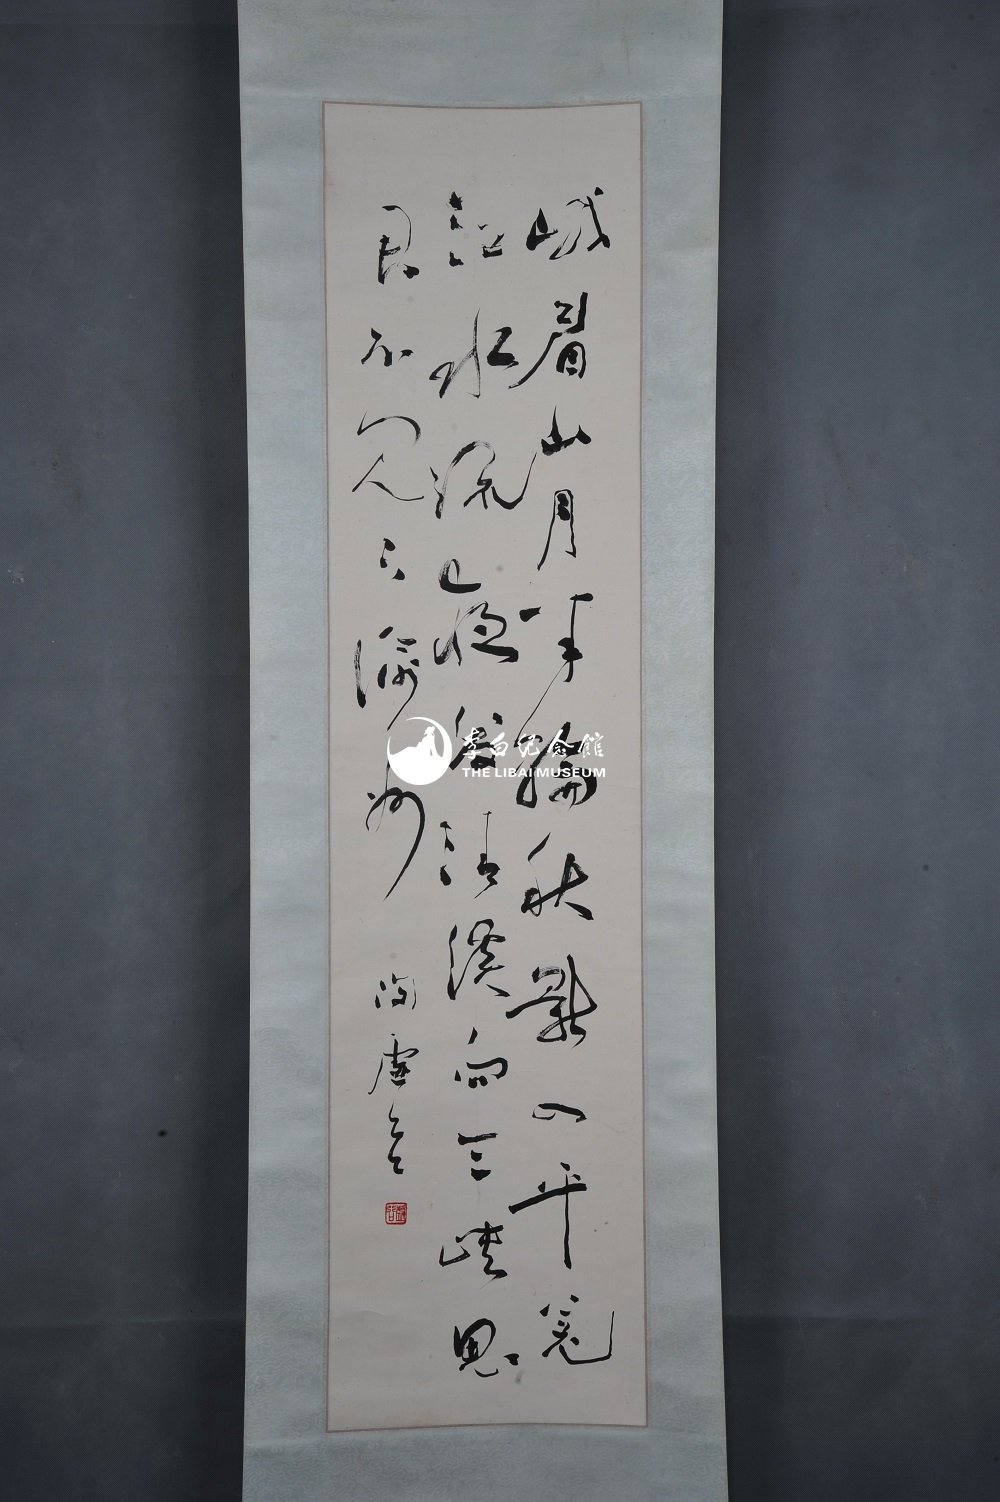 峨眉山月半輪秋影入平羌
江水流夜發清溪向三峽思
君不見下渝州
李白纪念館
THE LIBAI MUSEUM